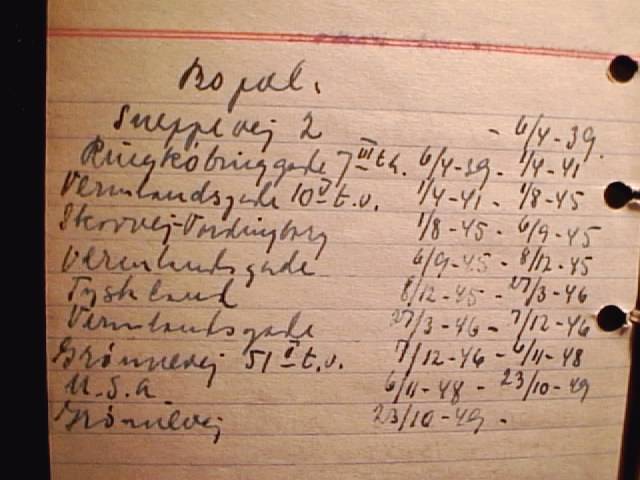 Bopæl.
Sneppevej 2 - 6/4-39.
Ringkøbinggade 7 III t.h. 6/4-39 - 1/4-41
Vermlandsgade 10 V t.v. 1/4-41 - 1/8-45
Skovvej-Vordingborg 1/8-45 - 6/9-45
Vermlandsgade 6/9-45 - 8/12-45
Tyskland 8/12-45 - 27/3-46
Vermlandsgade 27/3-46 - 7/12-46
Grønnevej 51 I t.v. 7/12-46 - 6/11-48
U.S.A. 6/11-48 - 23/10-49
Grønnevej 23/10-49 -